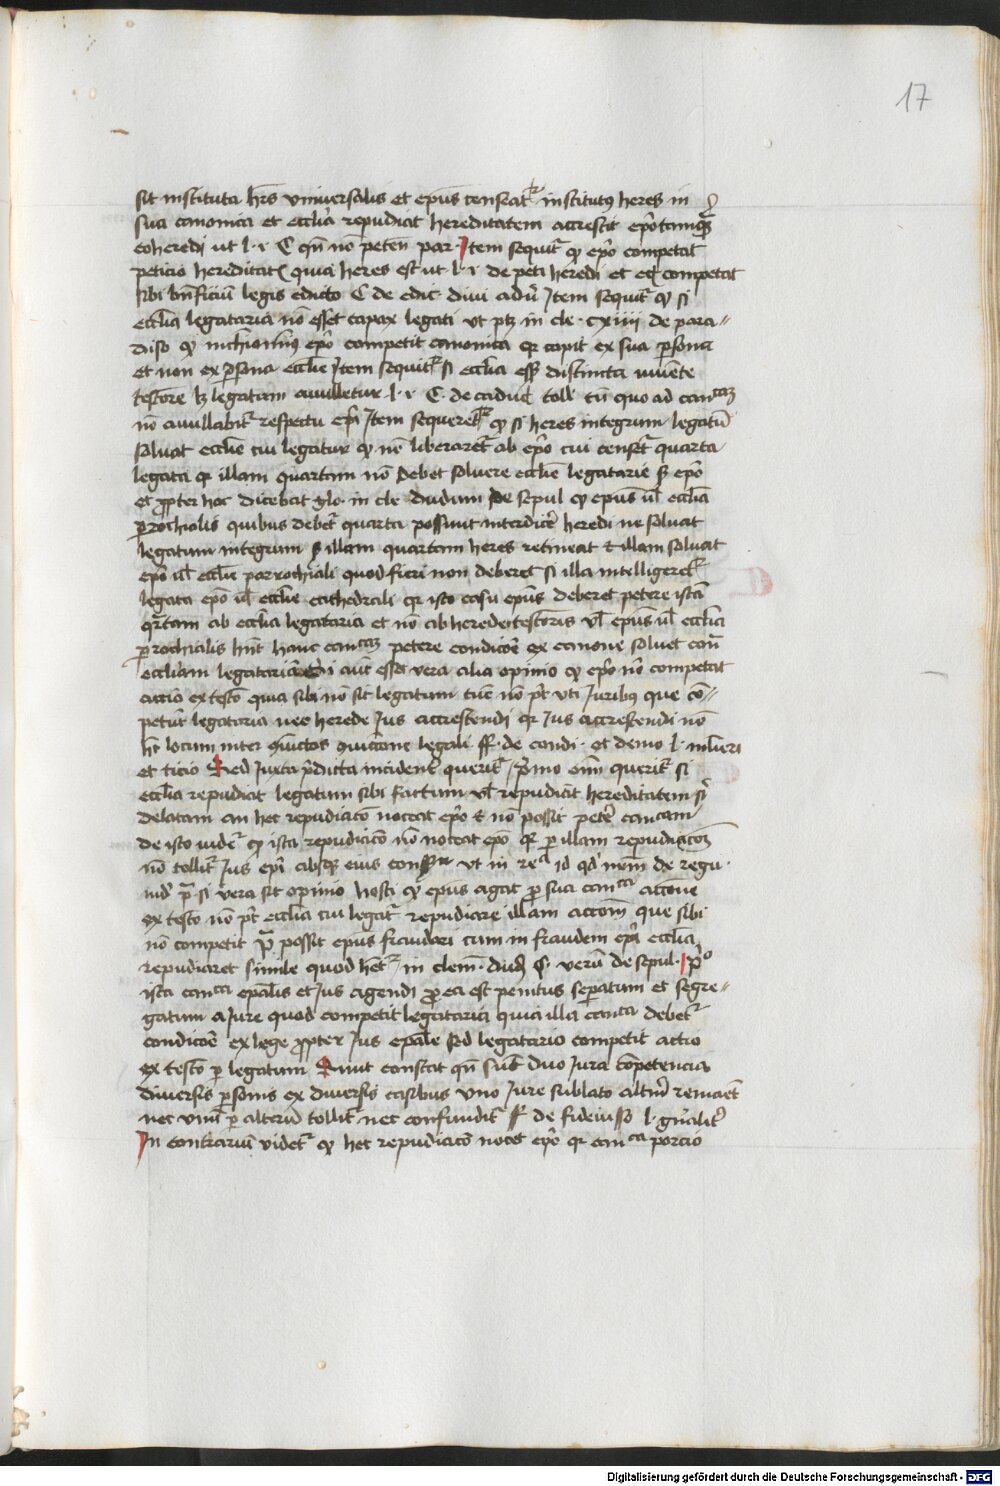 17
sit instituta hr̄s vniuersalis et ep̄us censeatr institutꝰ heres in
sua canonica et eccl̄ia repudiat hereditatem accrescit ep̄o tamqᷓ
coheredi ut l. i C qn̄ nō peten̄ par. Item sequitr ꝙ ep̄o competat
peticio hereditatꝭ quia heres est ut l. i de peti heredi et competat
sibi bn̄ficiū legis edicto C de edic. diui adrī Item sequitr ꝙ si
eccl̄ia legataria nō esset capax legati vt ptꝫ in cle. exiui de para-
diso ꝙ nichominꝰ ep̄o competit canonica qr capit ex sua ꝑsona
et non ex ꝑsona eccl̄ie Item sequitr si eccl̄ia esset distincta viuēte
testore lꝫ legatum annulletur l. i C. de caduc̄ toll̄ tn̄ quo ad canᶜᵃᵐ
nō annullabitr respectu ep̄i Item sequeretr ꝙ si heres integrum legatū
soluat eccl̄ie cui legatur ꝙ nō liberaretr ab ep̄o cui censetr quarta
legata qr illam quartam nō debet soluere eccl̄ie legatarie sꝫ ep̄o
et ꝓpter hoc dicebat glo. in cle dudum de sepul ꝙ ep̄us ul̄ eccl̄ia
ꝑrochialis quibus debetr quarta possunt interdicē heredi ne soluat
legatum integrum sꝫ illam quartam heres retineat et illam soluat
ep̄o ul̄ eccl̄ie parrochiali quod fieri non deberet si illa intelligeretr
legata ep̄o ul̄ eccl̄ie cathedrali qr isto casu ep̄us deberet petere istā
qrtam ab eccl̄ia legataria et nō ab herede testoris vl̄ ep̄us ul̄ eccl̄ia
ꝑrochialis hn̄t hanc canᶜᵃᵐ petere condicōe ex canone soluet con̄
eccl̄iam legatariā Si aut̄ esset vera alia opinio ꝙ ep̄o nō competat
actio ex testo quia sibi nō sit legatum tūc nō pt̄ vti Juribus que cō-
petūt legataria nec herede Jus accrescendi qr Jus accrescendi nō
ht̄ locum inter coniunctione legali ff. de condi. et demo l. mulieri
et ticio Sed Juxta p̄dicta incident̄ queritr / p̄mo em̄ queritr si
eccl̄ia repudiat legatum sibi factum vl̄ repudiat hereditatem sꝫ
delatam an hec repudiacō noceat ep̄o et nō possit petē canᶜᵃᵐ
de isto videtr ꝙ ista repudiacō nō noceat ep̄o qr ꝑ illam repudiacōꝫ
nō tollitr Jus ep̄i absqꝫ eius consensu vt in reᵃ id qd̄ nrm̄ de regu.
iud̄ p si vera sit opinio hosti ꝙ ep̄us agat ꝑ sua canᶜᵃ actione
ex testo nō pt̄ eccl̄ia cui legatr repudiare illam actōm que sibi
nō competit possit ep̄us fraudari cum in fraudem ep̄i eccl̄ia
repudiaret simile quod hr̄ in clem. dud̄ §. verū de sepul. p̄ᵒ
ista canᶜᵃ ep̄alis et Jus agendi ꝓ ea est penitus seꝑatum et segre-
gatum a Jure quod competit legataria quia illa canᶜᵃ debetr
condicōe ex lege ꝓpter Jus ep̄ale sꝫ legatario competit actio
ex testo ꝑ legatum Sunt constat qn̄ sunt duo Jura cōpetencia
diuersis ꝑsonis ex diuersis casibus vno Jure sublato altm̄ remāet
nec vnū ꝑ alterū tollitr nec confunditr ff de fideiusso l. gn̄alitr
In contrariū videtr ꝙ hec repudiacō nocet ep̄o qr canᶜᵃ porcio
Digitalisierung gefördert durch die Deutsche Forschungsgemeinschaft - DFG